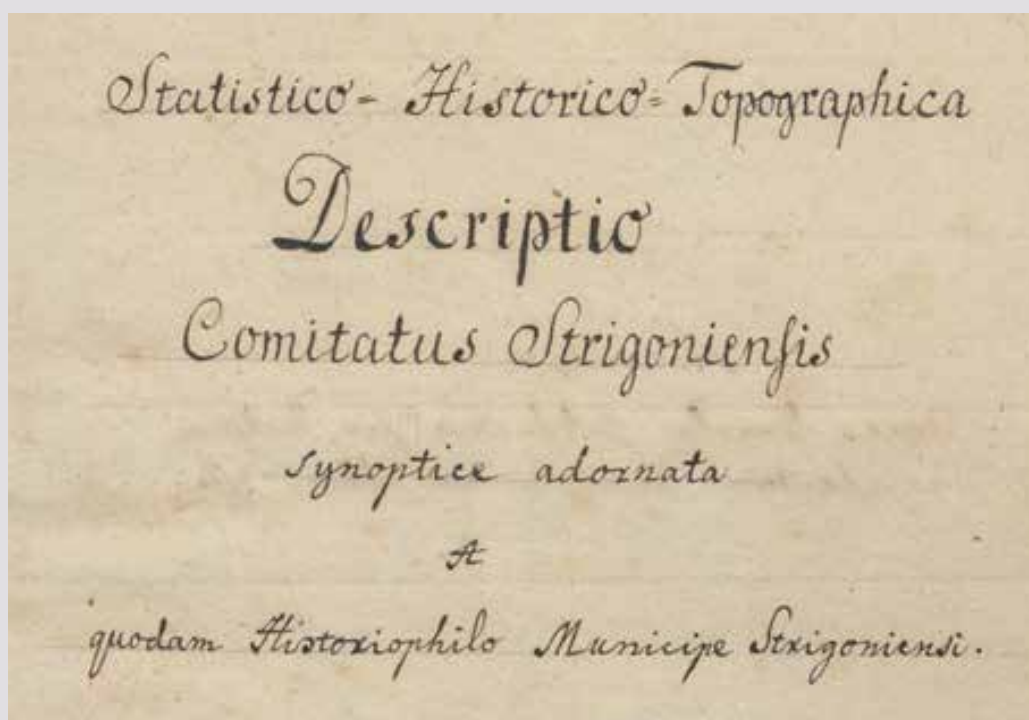 Statistico- Historico- Topographica
Descriptio
Comitatus Strigoniensis
synoptice adornata
A
quodam Historiophilo Municipe Strigoniensi.